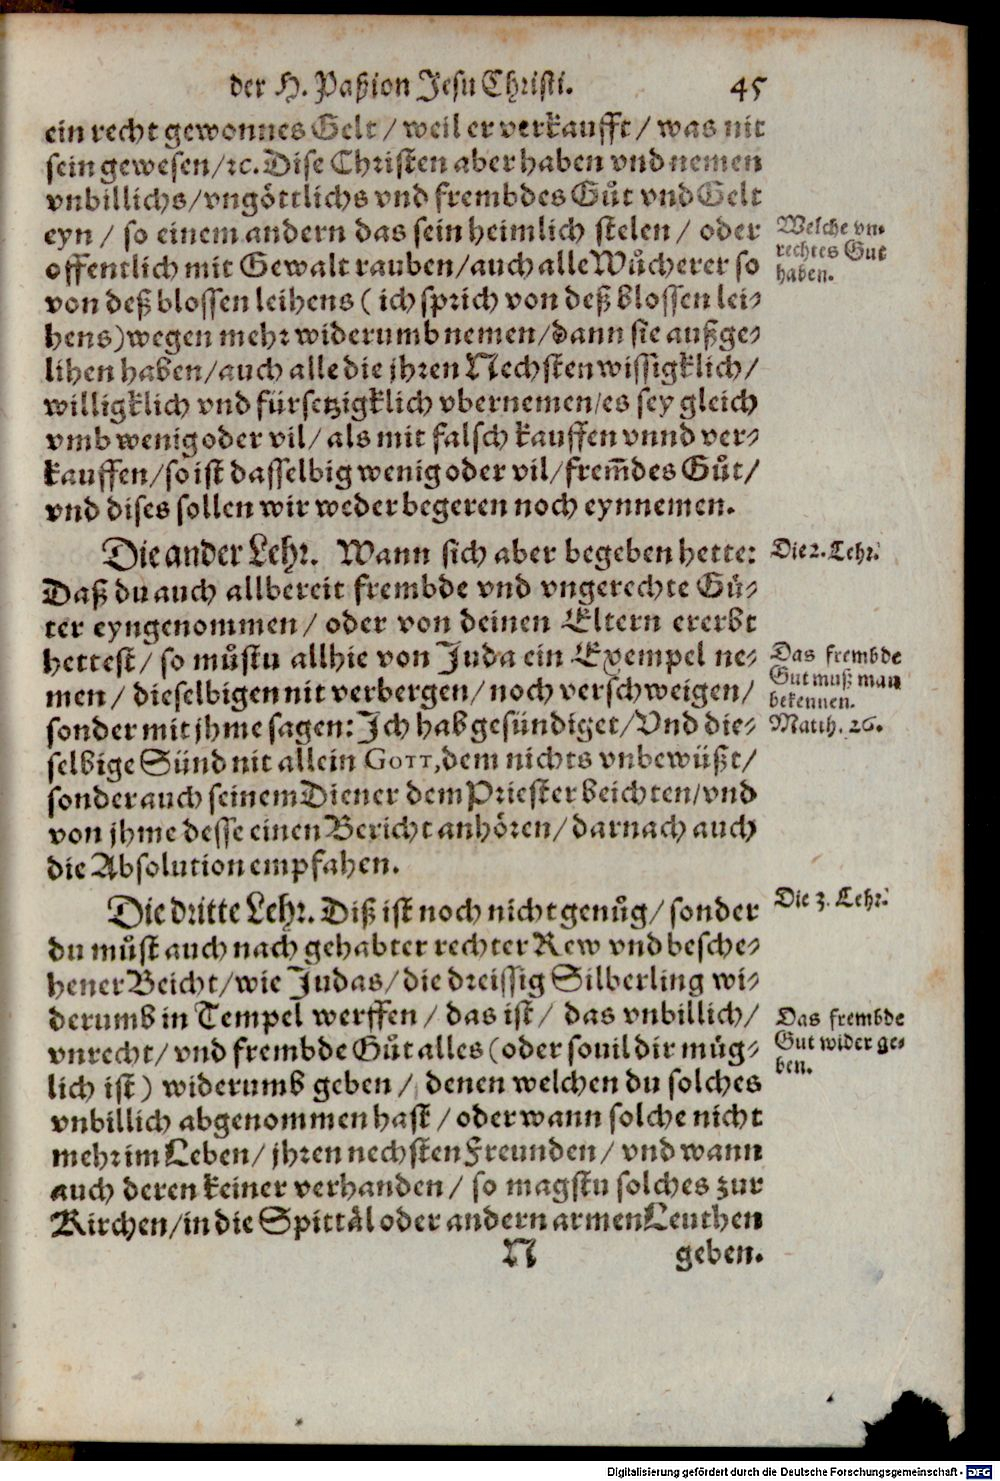 der H. Paßion Jesu Christi. 45
ein recht gewonnes Gelt / weil er verkaufft / was nit
sein gewesen / ꝛc. Dise Christen aber haben vnd nemen
vnbillichs / vngöttlichs vnd frembdes Gůt vnd Gelt
eyn / so einem andern das sein heimlich stelen / oder
offentlich mit Gewalt rauben / auch alle Wůcherer so
von deß blossen leihens ( ich sprich von deß blossen lei-
hens) wegen mehr widerumb nemen / dann sie außge-
lihen haben / auch alle die jhren Nechsten wissigklich /
willigklich vnd fürsetzigklich vbernemen / es sey gleich
vmb wenig oder vil / als mit falsch kauffen vnnd ver-
kauffen / so ist dasselbig wenig oder vil / frem̃des Gůt /
vnd dises sollen wir weder begeren noch eynnemen.
Welche vn-
rechtes Gut
haben.
Die ander Lehr. Wann sich aber begeben hette:
Daß du auch allbereit frembde vnd vngerechte Gü-
ter eyngenommen / oder von deinen Eltern ererbt
hettest / so můstu allhie von Juda ein Exempel ne-
men / dieselbigen nit verbergen / noch verschweigen /
sonder mit jhme sagen: Ich hab gesündiget / Vnd die-
selbige Sünd nit allein GOTT, dem nichts vnbewüßt /
sonder auch seinem Diener dem Priester beichten / vnd
von jhme desse einen Bericht anhören / darnach auch
die Absolution empfahen.
Die 2. Lehr.
Das frembde
Gut muß man
bekennen.
Matth. 26.
Die dritte Lehr. Diß ist noch nicht genůg / sonder
du můst auch nach gehabter rechter Rew vnd besche-
hener Beicht / wie Judas / die dreissig Silberling wi-
derumb in Tempel werffen / das ist / das vnbillich /
vnrecht / vnd frembde Gůt alles (oder souil dir müg-
lich ist) widerumb geben / denen welchen du solches
vnbillich abgenommen hast / oder wann solche nicht
mehr im Leben / jhren nechsten Freunden / vnd wann
auch deren keiner verhanden / so magstu solches zur
Kirchen / in die Spittäl oder andern armen Leuthen
Die 3. Lehr.
Das frembde
Gut wider ge-
ben.
N geben.
Digitalisierung gefördert durch die Deutsche Forschungsgemeinschaft - DFG